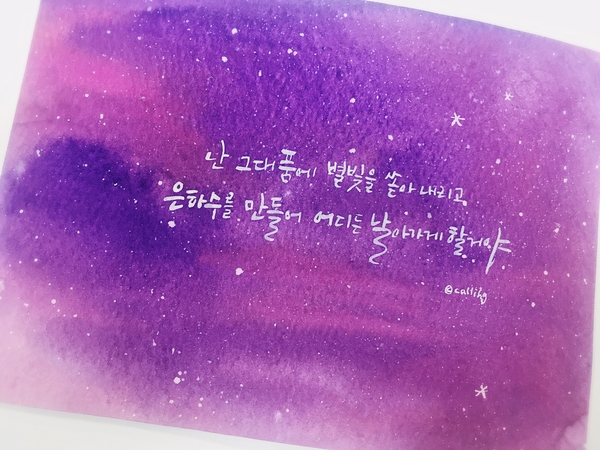 난 그대 품에 별빛을 쏟아 내리고
은하수를 만들어 어디든 날아가게 할거야
@callihg